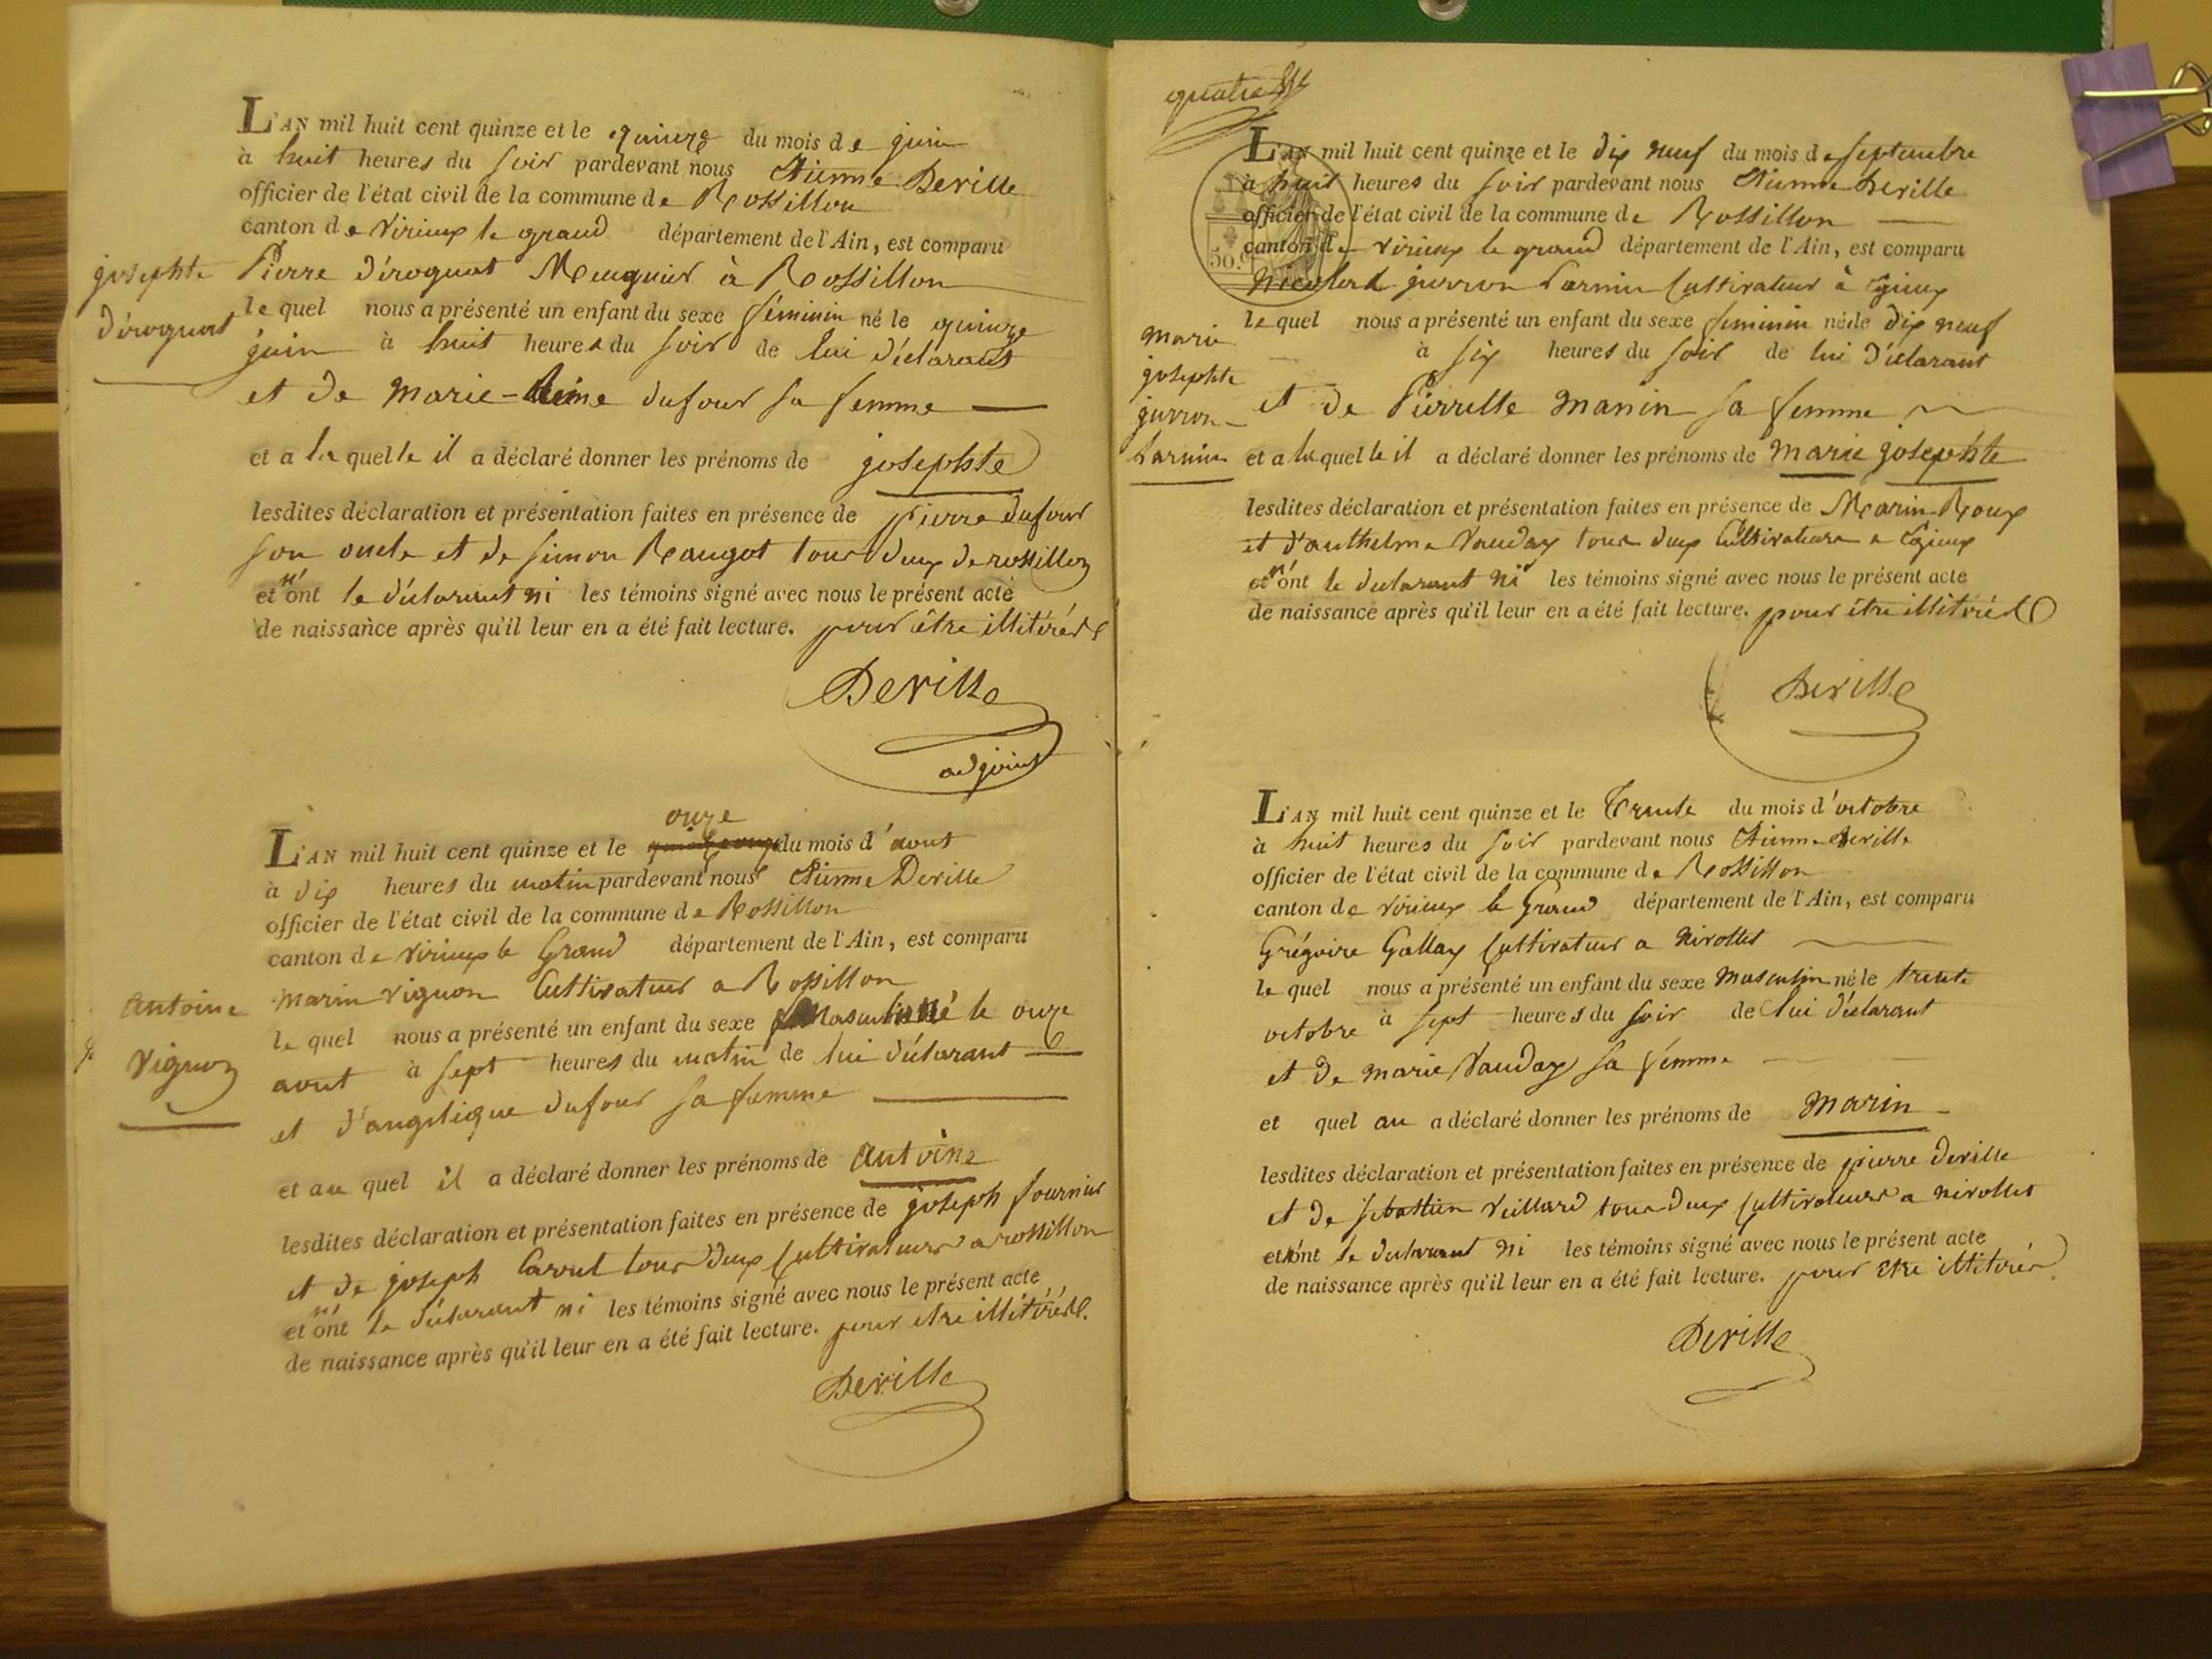 L'AN mil huit cent quinze et le quinze du mois de juin
à huit heures du soir pardevant nous Etienne Deville
officier de l'état civil de la commune de Rossillon
canton de Virieux le grand département de l'Ain, est comparu
josephte
déroguat
Pierre déroguat Meugnier à Rossillon
le quel nous a présenté un enfant du sexe féminin né le quinze
juin à huit heures du soir de lui déclarant
et de marie- dufour sa femme
et a la quelle il a déclaré donner les prénoms de josephte
lesdites déclaration et présentation faites en présence de pierre dufour
son oncle et de simon Raugot tous deux de rossillon
et n'ont le déclarant ni les témoins signé avec nous le présent acte
de naissance après qu'il leur en a été fait lecture. pour être illitérés
Deville
adjoint
L'AN mil huit cent quinze et le onze du mois d'aout
à dix heures du matin pardevant nous Etienne Deville
officier de l'état civil de la commune de Rossillon
canton de virieux le Grand département de l'Ain, est comparu
antoine
vignon
marin vignon Cultivateur a Rossillon
le quel nous a présenté un enfant du sexe Masculin né le onze
aout à sept heures du matin de lui déclarant
et d'angelique dufour sa femme
et au quel il a déclaré donner les prénoms de antoine
lesdites déclaration et présentation faites en présence de joseph fournier
et de joseph Carrel tous deux Cultivateurs a rossillon
et n'ont le déclarant ni les témoins signé avec nous le présent acte
de naissance après qu'il leur en a été fait lecture. pour etre illitérés.
Deville
quatre
50.c
L'AN mil huit cent quinze et le dix neuf du mois de septembre
à huit heures du soir pardevant nous Etienne Deville
officier de l'état civil de la commune de Rossillon
canton de virieux le grand département de l'Ain, est comparu
marie
josephte
jurron
Larmin
jurron Larmin Cultivateur à Egieux
le quel nous a présenté un enfant du sexe feminin né le dix neuf
à six heures du soir de lui déclarant
et de Pierrette manin sa femme
et a la quelle il a déclaré donner les prénoms de marie josephte
lesdites déclaration et présentation faites en présence de Marin Roux
et d'anthelme Vauday tous deux Cultivateurs a Egieux
et n'ont le declarant ni les témoins signé avec nous le présent acte
de naissance après qu'il leur en a été fait lecture. pour être illitérés
Deville
L'AN mil huit cent quinze et le Trente du mois d'octobre
à huit heures du soir pardevant nous Etienne deville
officier de l'état civil de la commune de Rossillon
canton de virieux le Grand département de l'Ain, est comparu
Grégoire Gallay Cultivateur a nivollet
le quel nous a présenté un enfant du sexe masculin né le trente
octobre à sept heures du soir de lui déclarant
et de marie Vauday sa femme
et quel au a déclaré donner les prénoms de marin
lesdites déclaration et présentation faites en présence de pierre deville
et de sebastien veillard tous deux Cultivateurs a nivollet
et n'ont le declarant ni les témoins signé avec nous le présent acte
de naissance après qu'il leur en a été fait lecture. pour etre illitérés
Deville